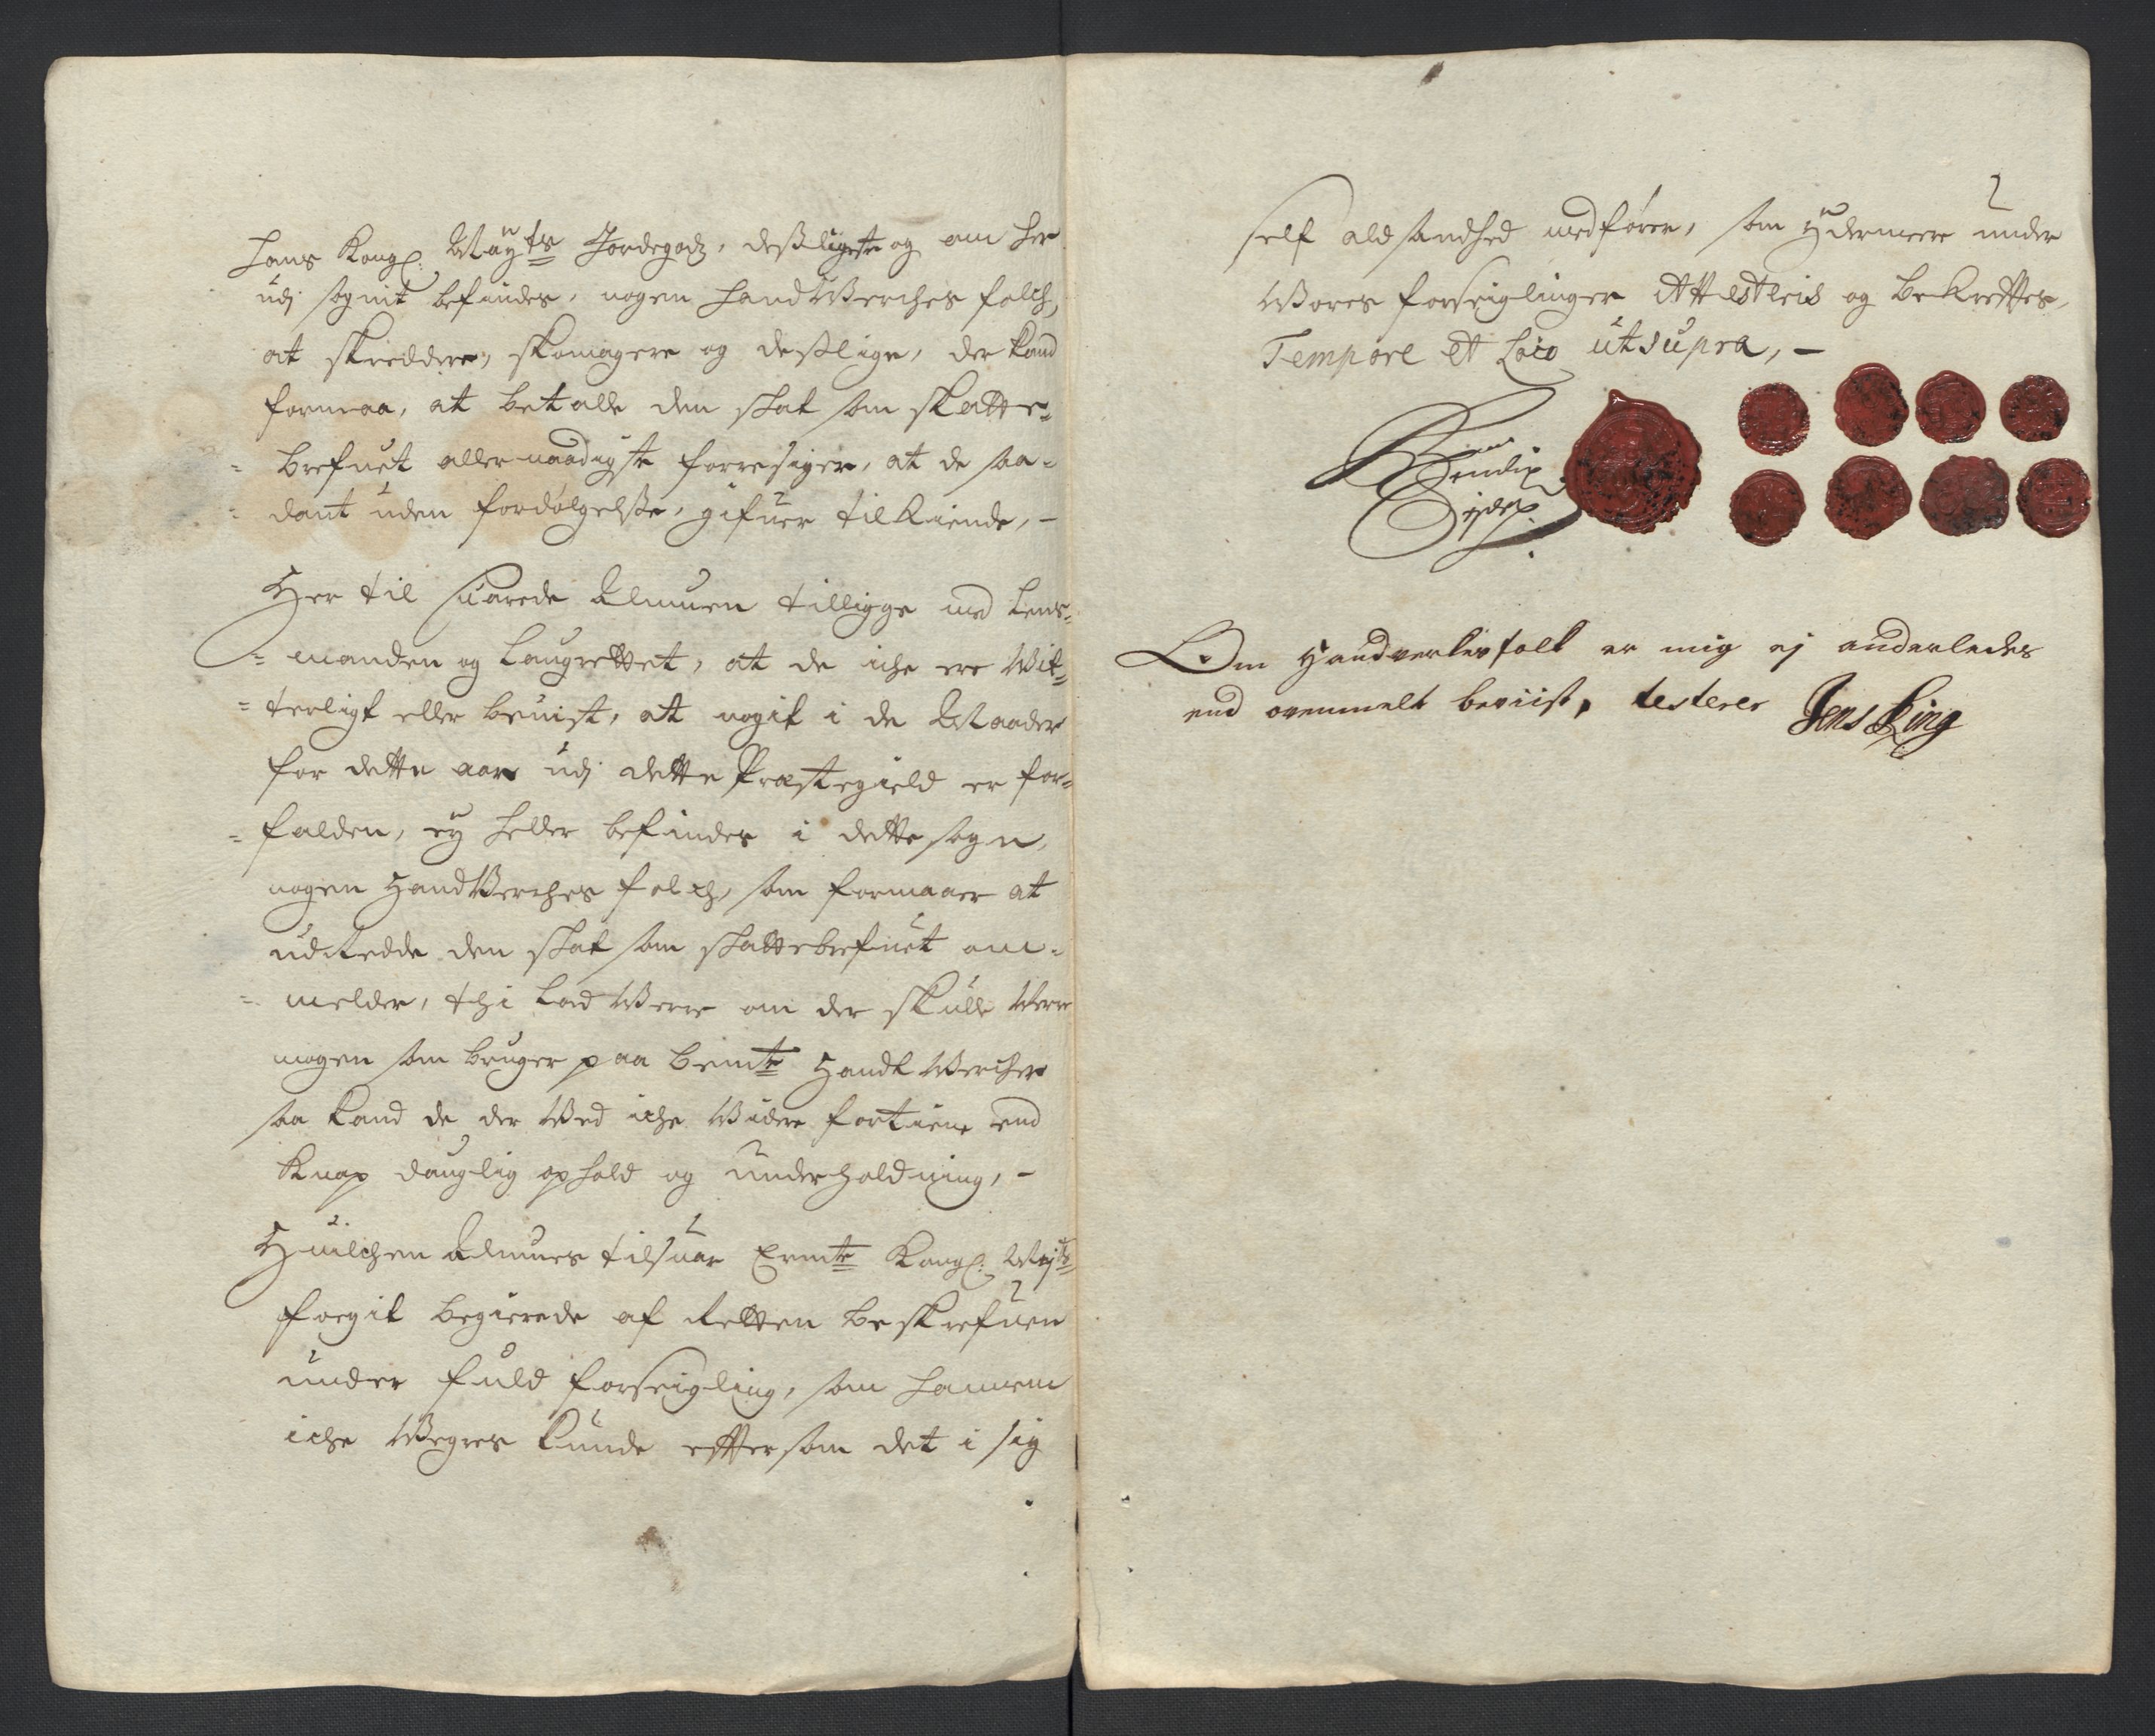 Hans Kongl: Mayts Jordegodz, desligeste og om her
udj sognit befindes, nogen HandWerches folch,
at skreddere, skomagere og deslige, der kand
formaa, at betalle den skat som skatte-
brefuet allernaadigste foresiger, at de saa-
dant uden fordølgelsse, gifuer tilkiende, -
Her til suarede Almuen tilligge med Lens-
manden og Laugrettet, at de iche ere Wit-
terligt eller beuist, at nogit i de Maader
for dette aar udj dette Præstegield er for-
falden, ey heller befindes i dette sogn,
nogen HandWerches folch, som formaaer at
udredde den skat som skattebrefuet om-
melder, thi lad Were om der skulle Were
nogen som bruger paa bemte HandtWercher
saa kand de der Wed iche Widere fortiene end
Knap dauglig ophold og underholdning, -
Huilchen Almues tilsuar Ermte Kongl: Mayts
foegit begierede af Retten beskrefuen
under fuld forseigling, som hannem
iche Wegres kunde effter som det i sig
self ald sandhed medfører, som ydermeere under
Wores forseiglinger Attesteris og bekrefftes,
Tempore et Loco utsupra, -
Om Handverksfolk er mig ej anderledes
end ovenmelt beviist, testerer Jens Ring